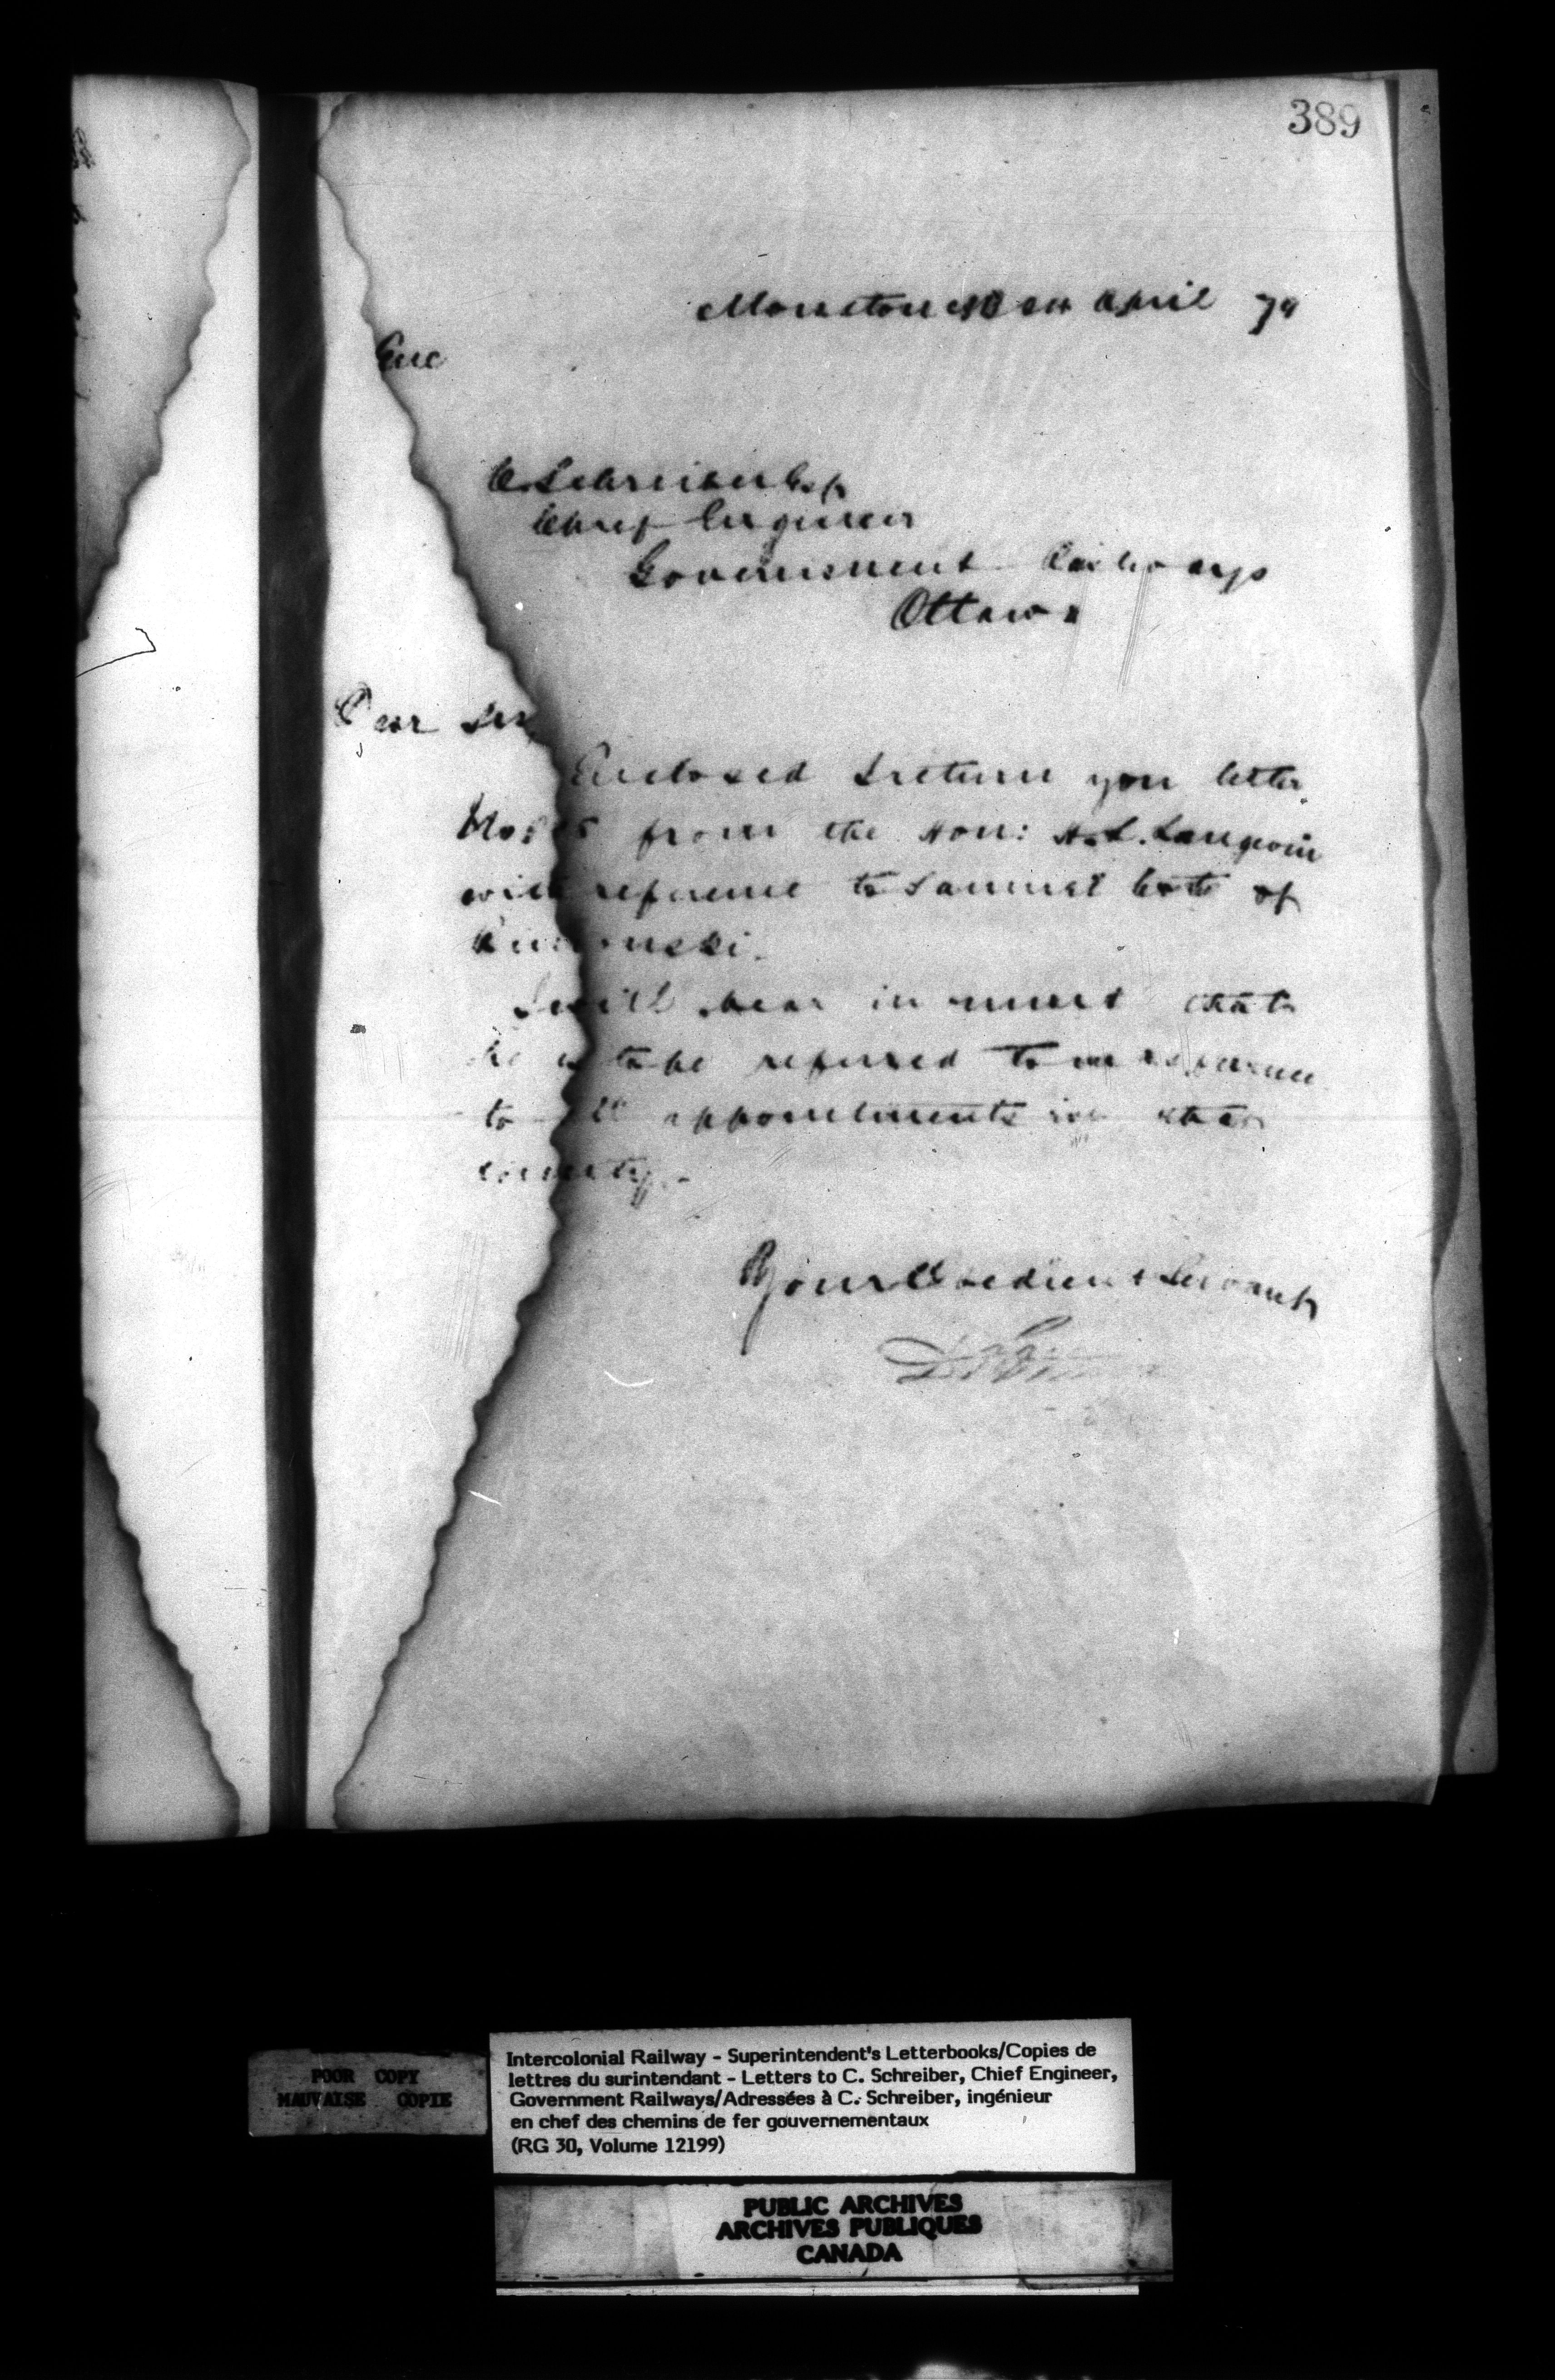 389
Moncton NB April 79
Enc
C. Schreiber Esq
Chief Engineer
Government Railways
Ottawa
Dear Sir
Enclosed I return you letter
from the Hon: H. L. Langevin
with reference to Samuel of
Rimouski.
I will bear in mind that
he is to be referred to in reference
to all appointments in that
county.
Your Obedient Servant
POOR COPY
MAUVAISE COPIE
Intercolonial Railway - Superintendent's Letterbooks/Copies de
lettres du surintendant - Letters to C. Schreiber, Chief Engineer,
Government Railways/Adressées à C. Schreiber, ingénieur
en chef des chemins de fer gouvernementaux
(RG 30, Volume 12199)
PUBLIC ARCHIVES
ARCHIVES PUBLIQUES
CANADA